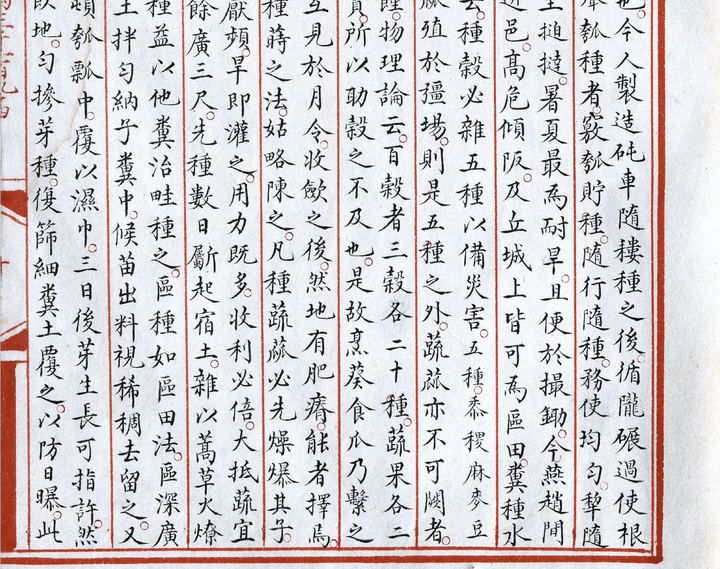 也。今人製造砘車隨耬種之後。循隴碾過使根
瓠種者。竅瓠貯種。隨行隨種。務使均勻。犁隨
搥撻。暑夏最為耐旱。且便於撮鋤。今燕趙間
邑。高危傾阪。及丘城上皆可為區田。糞種水
去。種穀必雜五種以備災害。五種。黍稷麻麥豆
殖於疆埸。則是五種之外。蔬蓏亦不可闕者。
物理論云。百穀者三穀各二十種。蔬果各二
實。所以助穀之不及也。是故烹葵食瓜乃繫之
互見於月令。收歛之後。然地有肥瘠。能者擇焉。
種蒔之法。姑略陳之。凡種蔬蓏必先燥爆其子。
厭頻。旱即灌之。用力既多。收利必倍。大抵蔬宜
餘廣三尺。先種數日斸起宿土。雜以蒿草火燎
種益以他糞治畦種之。區種如區田法。區深廣
土拌勻納子糞中。候苗出料視稀稠去留之。又
頓瓠瓢中。覆以濕巾。三日後芽生長可指許。然
於地。勻摻芽種。復篩細糞土覆之。以防日曝。此